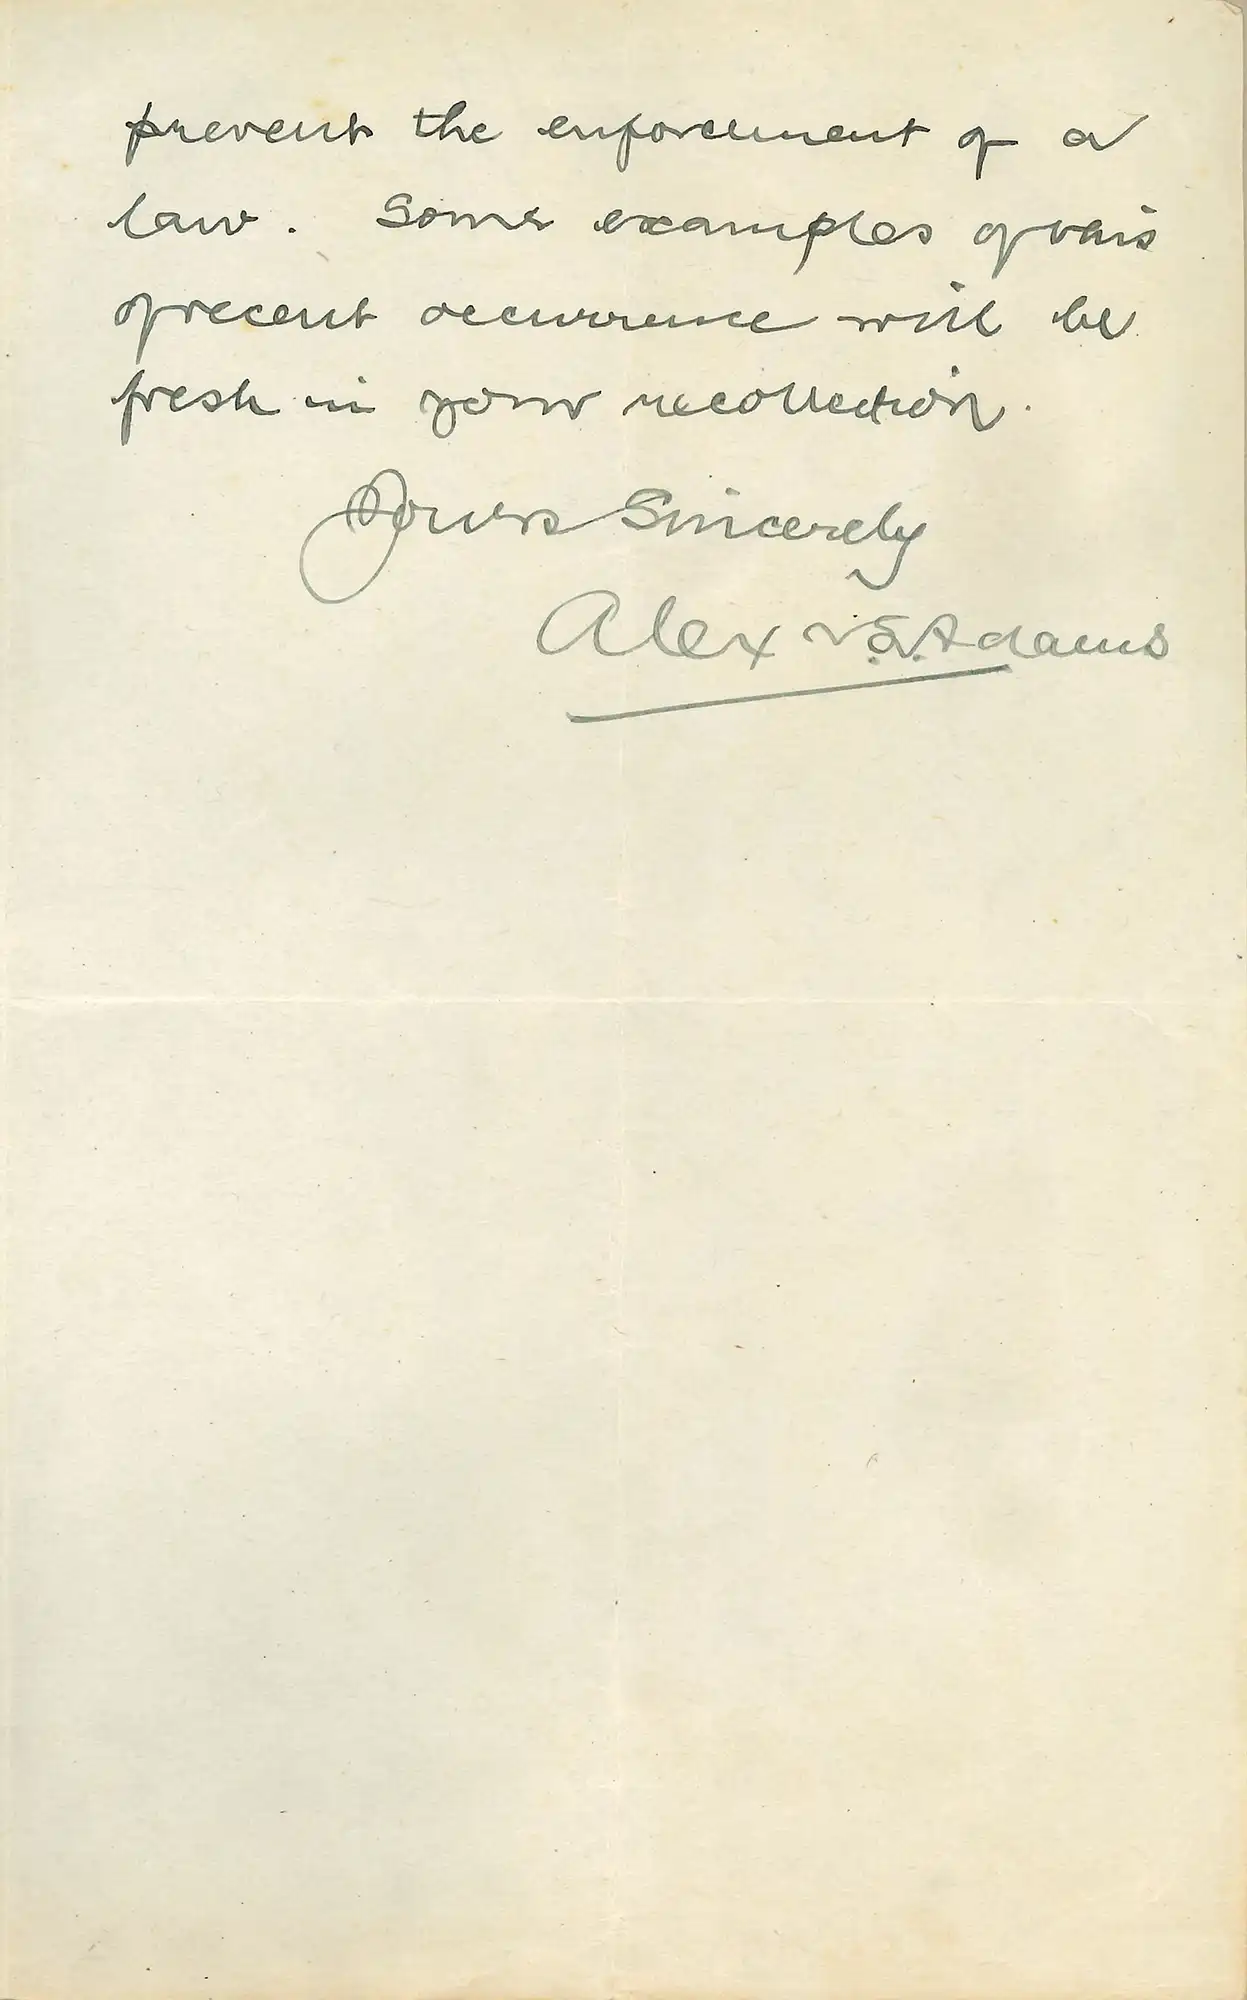 prevent the enforcement of a
law. Some examples of this
of recent occurrence will be
fresh in your recollection.
Yours Sincerely
Alex Adams